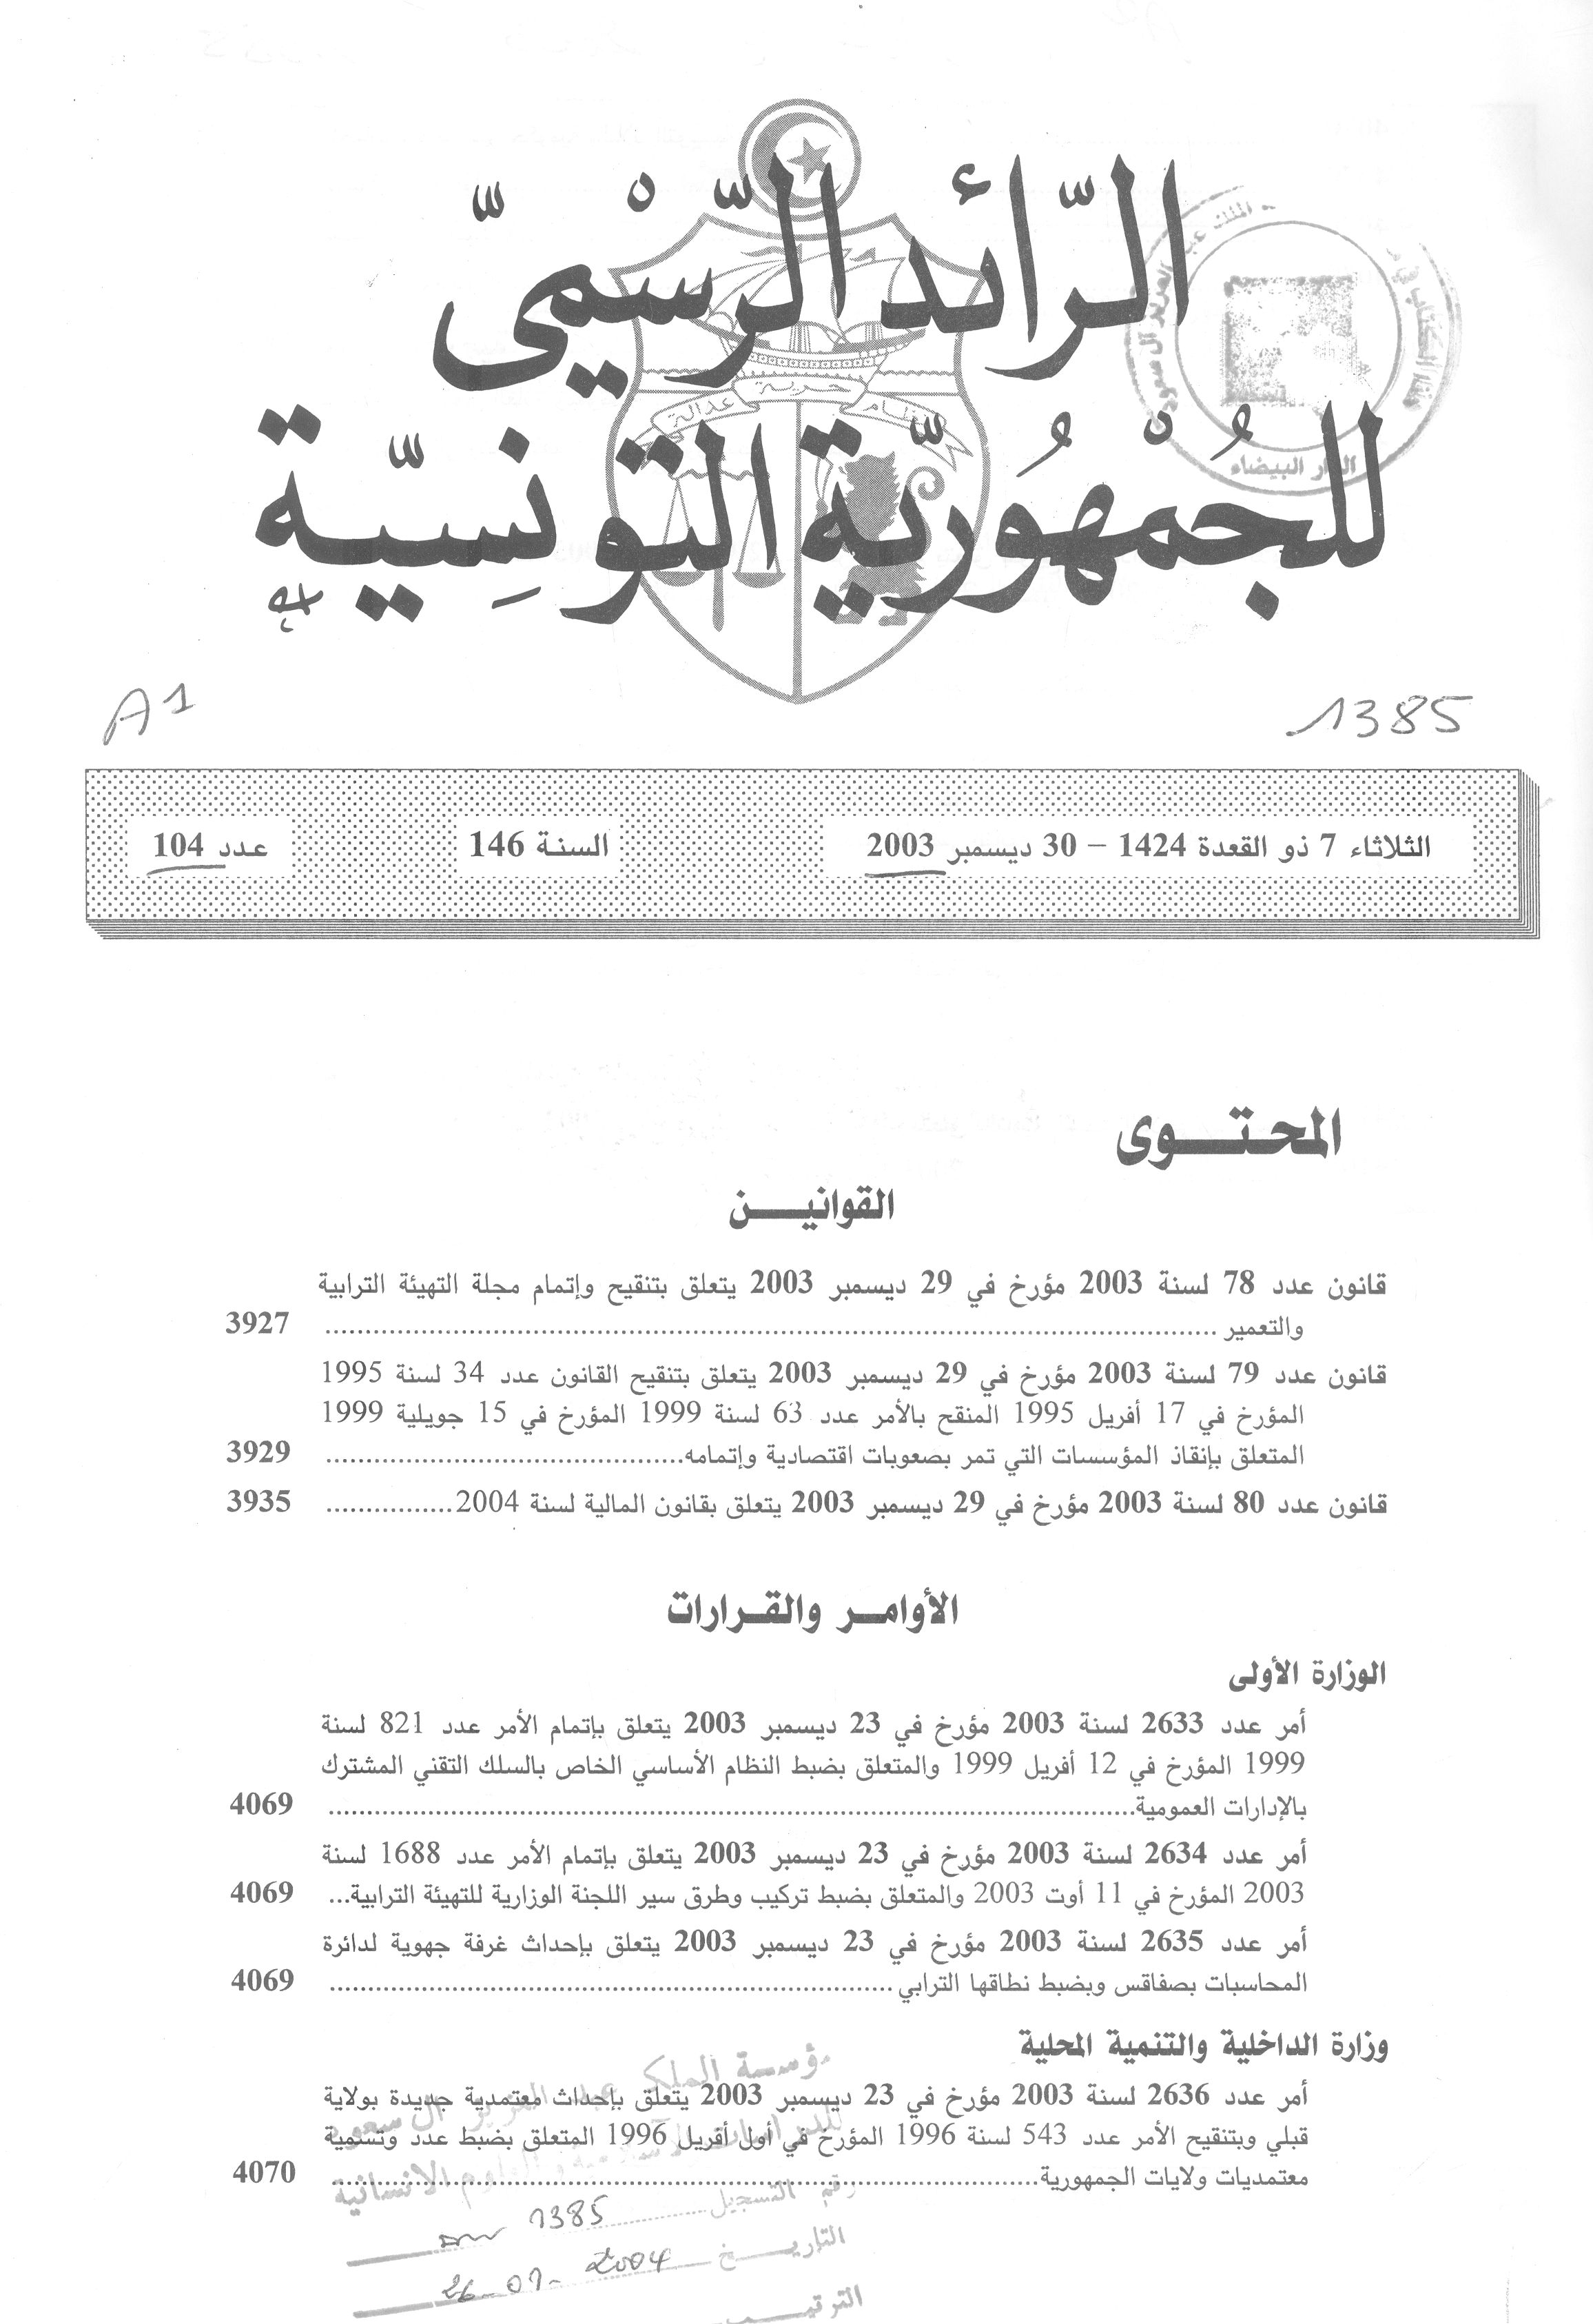 الرّائد الرّسْميّ
للجُمْهُوريّة التونِسيّة
نظام حرية عدالة
الدار البيضاء
A1
1385
الثلاثاء 7 ذو القعدة 1424 – 30 ديسمبر 2003
السنة 146
عدد 104
المحتوى
القوانين
قانون عدد 78 لسنة 2003 مؤرخ في 29 ديسمبر 2003 يتعلق بتنقيح وإتمام مجلة التهيئة الترابية
والتعمير ........ 3927
قانون عدد 79 لسنة 2003 مؤرخ في 29 ديسمبر 2003 يتعلق بتنقيح القانون عدد 34 لسنة 1995
المؤرخ في 17 أفريل 1995 المنقح بالأمر عدد 63 لسنة 1999 المؤرخ في 15 جويلية 1999
المتعلق بإنقاذ المؤسسات التي تمر بصعوبات اقتصادية وإتمامه........ 3929
قانون عدد 80 لسنة 2003 مؤرخ في 29 ديسمبر 2003 يتعلق بقانون المالية لسنة 2004........ 3935
الأوامر والقرارات
الوزارة الأولى
أمر عدد 2633 لسنة 2003 مؤرخ في 23 ديسمبر 2003 يتعلق بإتمام الأمر عدد 821 لسنة
1999 المؤرخ في 12 أفريل 1999 والمتعلق بضبط النظام الأساسي الخاص بالسلك التقني المشترك
بالإدارات العمومية........ 4069
أمر عدد 2634 لسنة 2003 مؤرخ في 23 ديسمبر 2003 يتعلق بإتمام الأمر عدد 1688 لسنة
2003 المؤرخ في 11 أوت 2003 والمتعلق بضبط تركيب وطرق سير اللجنة الوزارية للتهيئة الترابية... 4069
أمر عدد 2635 لسنة 2003 مؤرخ في 23 ديسمبر 2003 يتعلق بإحداث غرفة جهوية لدائرة
المحاسبات بصفاقس وبضبط نطاقها الترابي........ 4069
وزارة الداخلية والتنمية المحلية
أمر عدد 2636 لسنة 2003 مؤرخ في 23 ديسمبر 2003 يتعلق بإحداث معتمدية جديدة بولاية
قبلي وبتنقيح الأمر عدد 543 لسنة 1996 المؤرخ في أول أفريل 1996 المتعلق بضبط عدد وتسمية
معتمديات ولايات الجمهورية........ 4070
مؤسسة الملك عبد العزيز آل سعود
للدراسات الاسلامية والعلوم الانسانية
رقم التسجيل 1385
التاريخ 26-01-2004
الترتيب